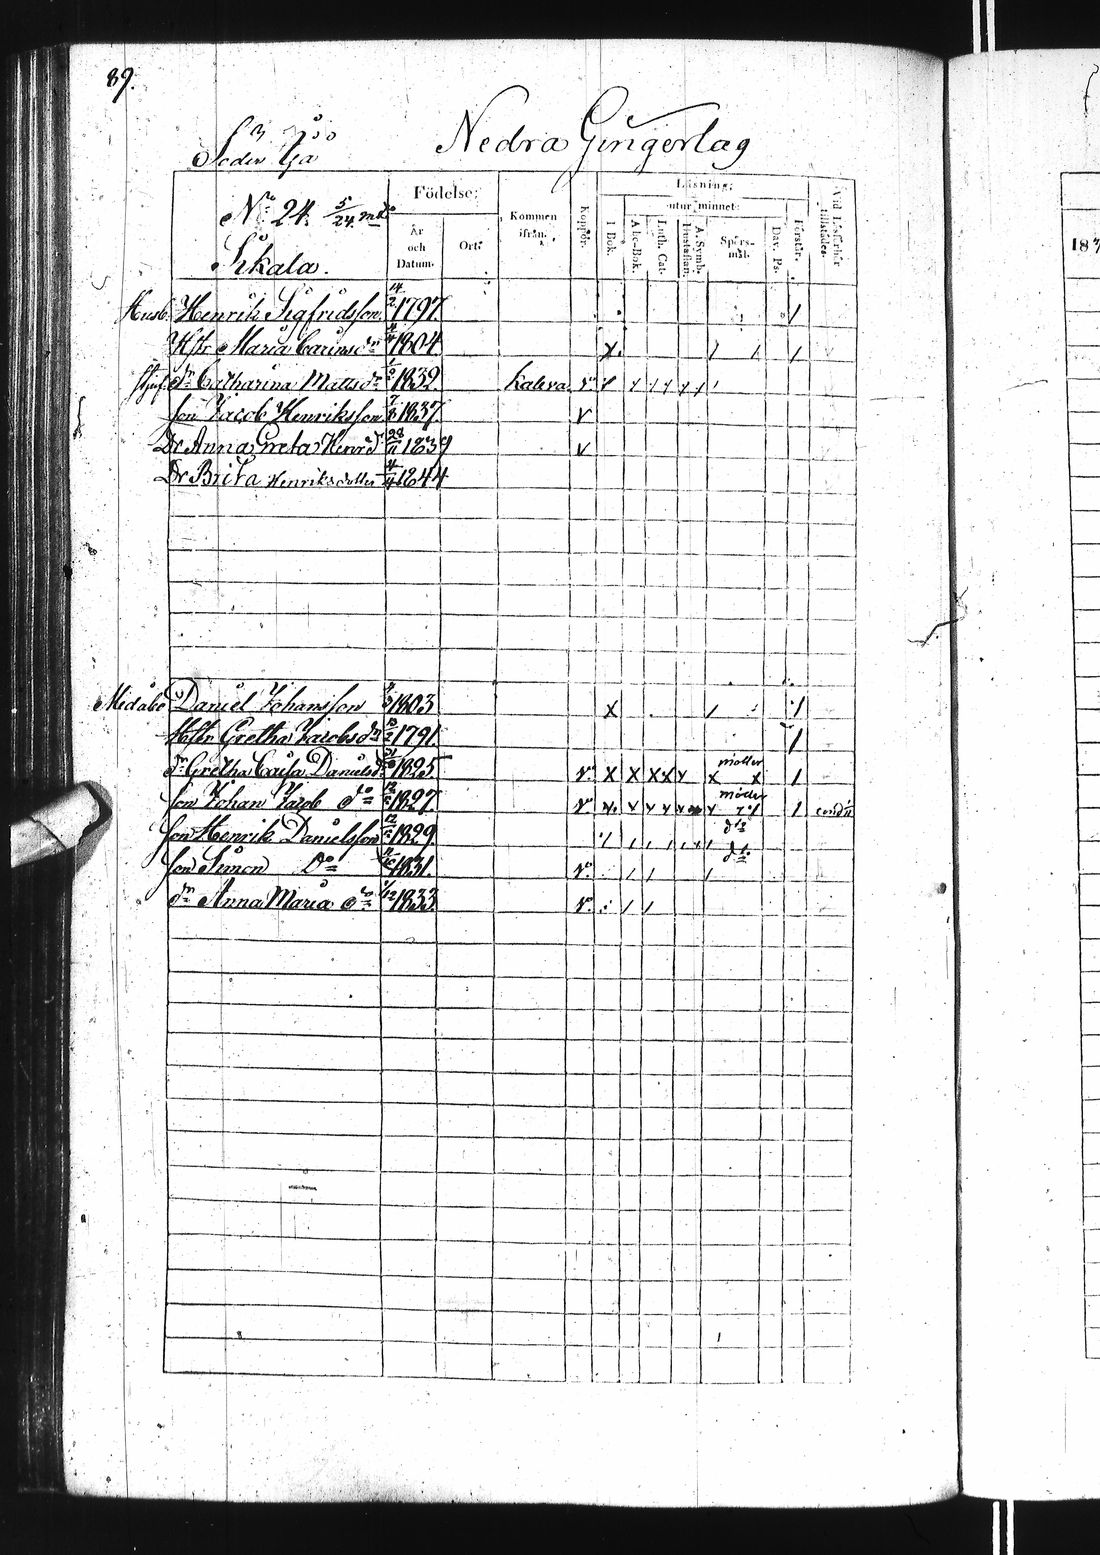 89.
Nedra Gingerlag
Söder Yå
No 24. 5/24 mtl
Sikala.
Födelse:
År och Datum.
Ort:
Kommen ifrån.
Koppor.
Läsning:
utur minnet:
I Bok.
Abc-Bok.
Luth. Cat.
Hustaflan.
A. Symb.
Spörsmål.
Dav. Ps.
Förstår.
Vid Läsförhör tillstädes.
183
Husb. Henrik Sigfridsson 14/2 1797.
Hstr Maria Carinsdr 1804
dr Catharina Mattsdr 1839 Kaleva v
son Jacob Henriksson 1837. v
Dr Anna Greta Henrsd 28/11 1839 v
Dr Brita Henriksdotter 4/4 1844
Midåbo Daniel Johansson 1803 x
Hstr Gretha Jacobsdr 1791.
dr Gretha Caisa Danielsdr 1825 v x x x x x x möller
son Johan Jacob do 1827. v
son Henrik Danielsson 1829. do
son Simon Do 1831. v do
dr Anna Maria do 1/12 1833. v